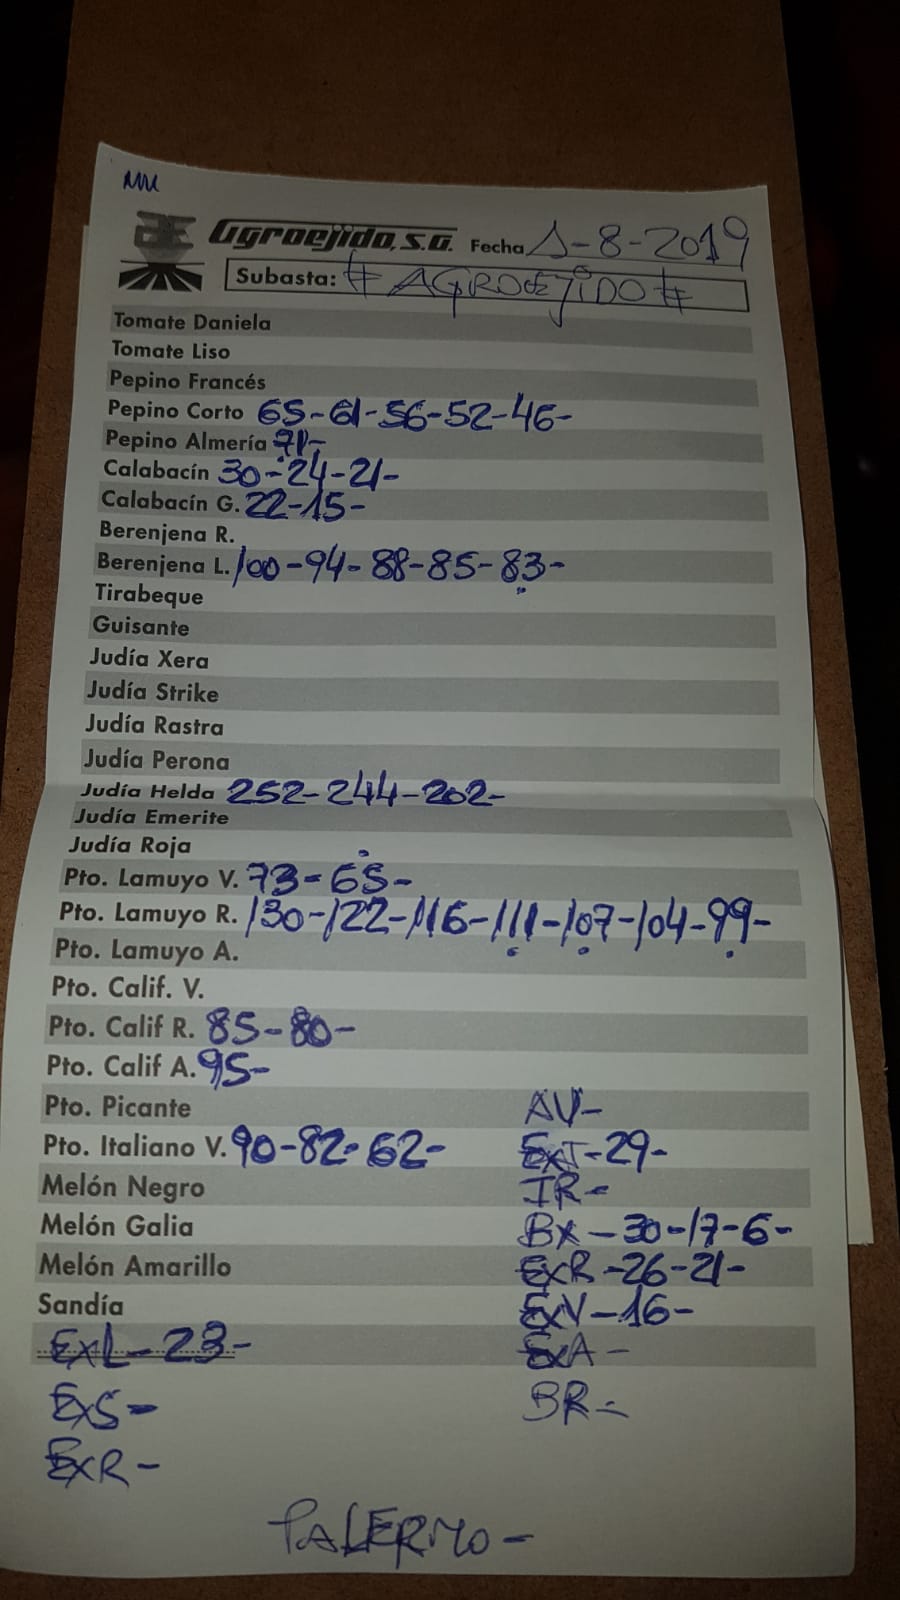 MM
Agroejido, S.A. Fecha 1-8-2019
Subasta: # AGROEJIDO #
Tomate Daniela
Tomate Liso
Pepino Francés
Pepino Corto 65-61-56-52-46-
Pepino Almería 71-
Calabacín 30-24-21-
Calabacín G. 22-15-
Berenjena R.
Berenjena L. 100-94-88-85-83-
Tirabeque
Guisante
Judía Xera
Judía Strike
Judía Rastra
Judía Perona
Judía Helda 252-244-202-
Judía Emerite
Judía Roja
Pto. Lamuyo V. 73-65-
Pto. Lamuyo R. 130-122-116-111-107-104-99-
Pto. Lamuyo A.
Pto. Calif. V.
Pto. Calif R. 85-80-
Pto. Calif A. 95-
Pto. Picante AV-
Pto. Italiano V. 90-82-62- ExT-29-
Melón Negro IR-
Melón Galia BX-30-17-6-
Melón Amarillo ExR-26-21-
Sandía ExV-16-
ExL-23- ExA-
ExS- BR-
ExR-
PALERMO-